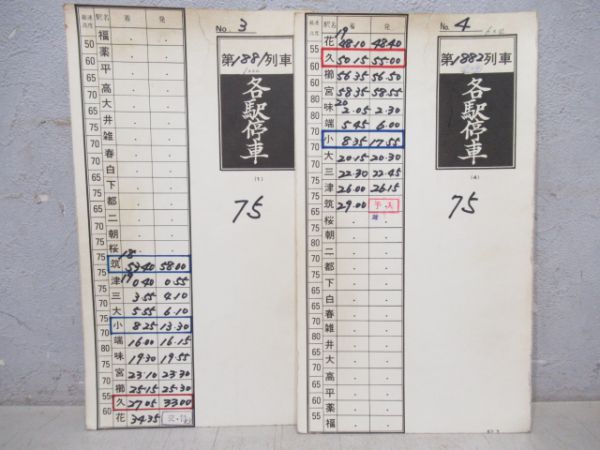 最速 速度 駅名 着 発
50 福
60 薬
平
70 高
大
60 井
70 雑
65 春
70 白
65 下
70 都
二
65 朝
75 桜
18
75 筑 53.40 58.00
19
75 津 0.40 0.55
70 三 3.55 4.10
大 5.55 6.10
75 小 8.25 13.30
70 端 16.00 16.15
味 19.30 19.55
宮 23.10 23.30
櫛 25.15 25.30
55 久 27.05 33.00
60 花 34.35
No. 3
第1881列車
各駅停車
(1)
75
最速 速度 駅名 着 発
19
55 花 48.10 48.40
60 久 50.15 55.00
櫛 56.35 56.50
宮 58.35 58.55
20
味 2.05 2.30
端 5.45 6.00
70 小 8.35 17.55
大 20.15 20.30
三 22.30 22.45
津 26.00 26.15
筑 29.00
桜
朝
二
都
下
白
春
雑
井
大
高
平
薬
福
No. 4
第1882列車
各駅停車
(4)
75